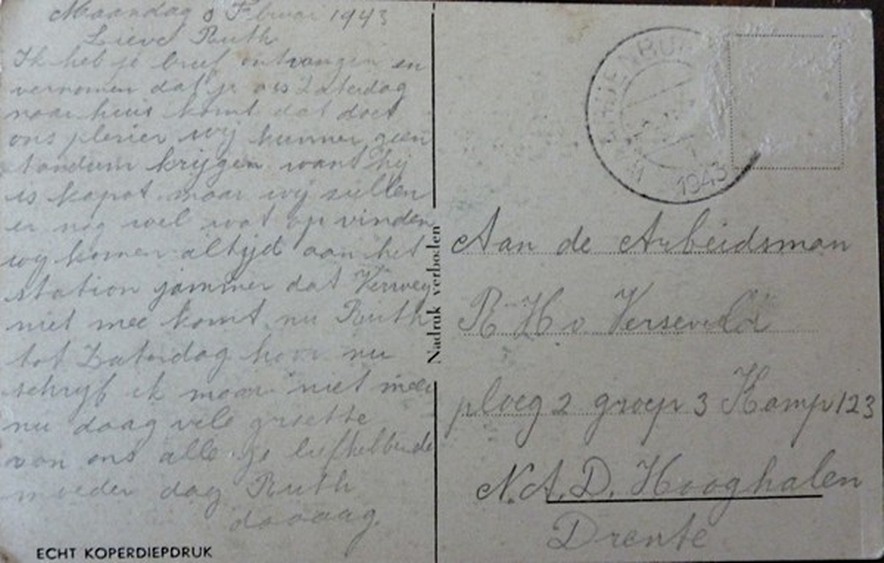 Maandag 8 Februari 1943
Lieve Ruth
Ik heb je brief ontvangen en
vernomen dat je a.s. Zaterdag
naar huis komt dat doet
ons plezier wij kunnen geen
tandem krijgen want hij
is kapot maar wij zullen
er nog wel wat op vinden
wij komen altijd aan het
station jammer dat Verwey
niet mee komt nu Ruth
tot Zaterdag hoor nu
schrijf ik maar niet meer
nu daag vele groette
van ons alle je liefhebbende
moeder dag Ruth
daaaag.
ECHT KOPERDIEPDRUK
Nadruk verboden
1943
Aan de Arbeidsman
R H v Verseveld
ploeg 2 groep 3 Kamp 123
N.A.D. Hooghalen
Drente